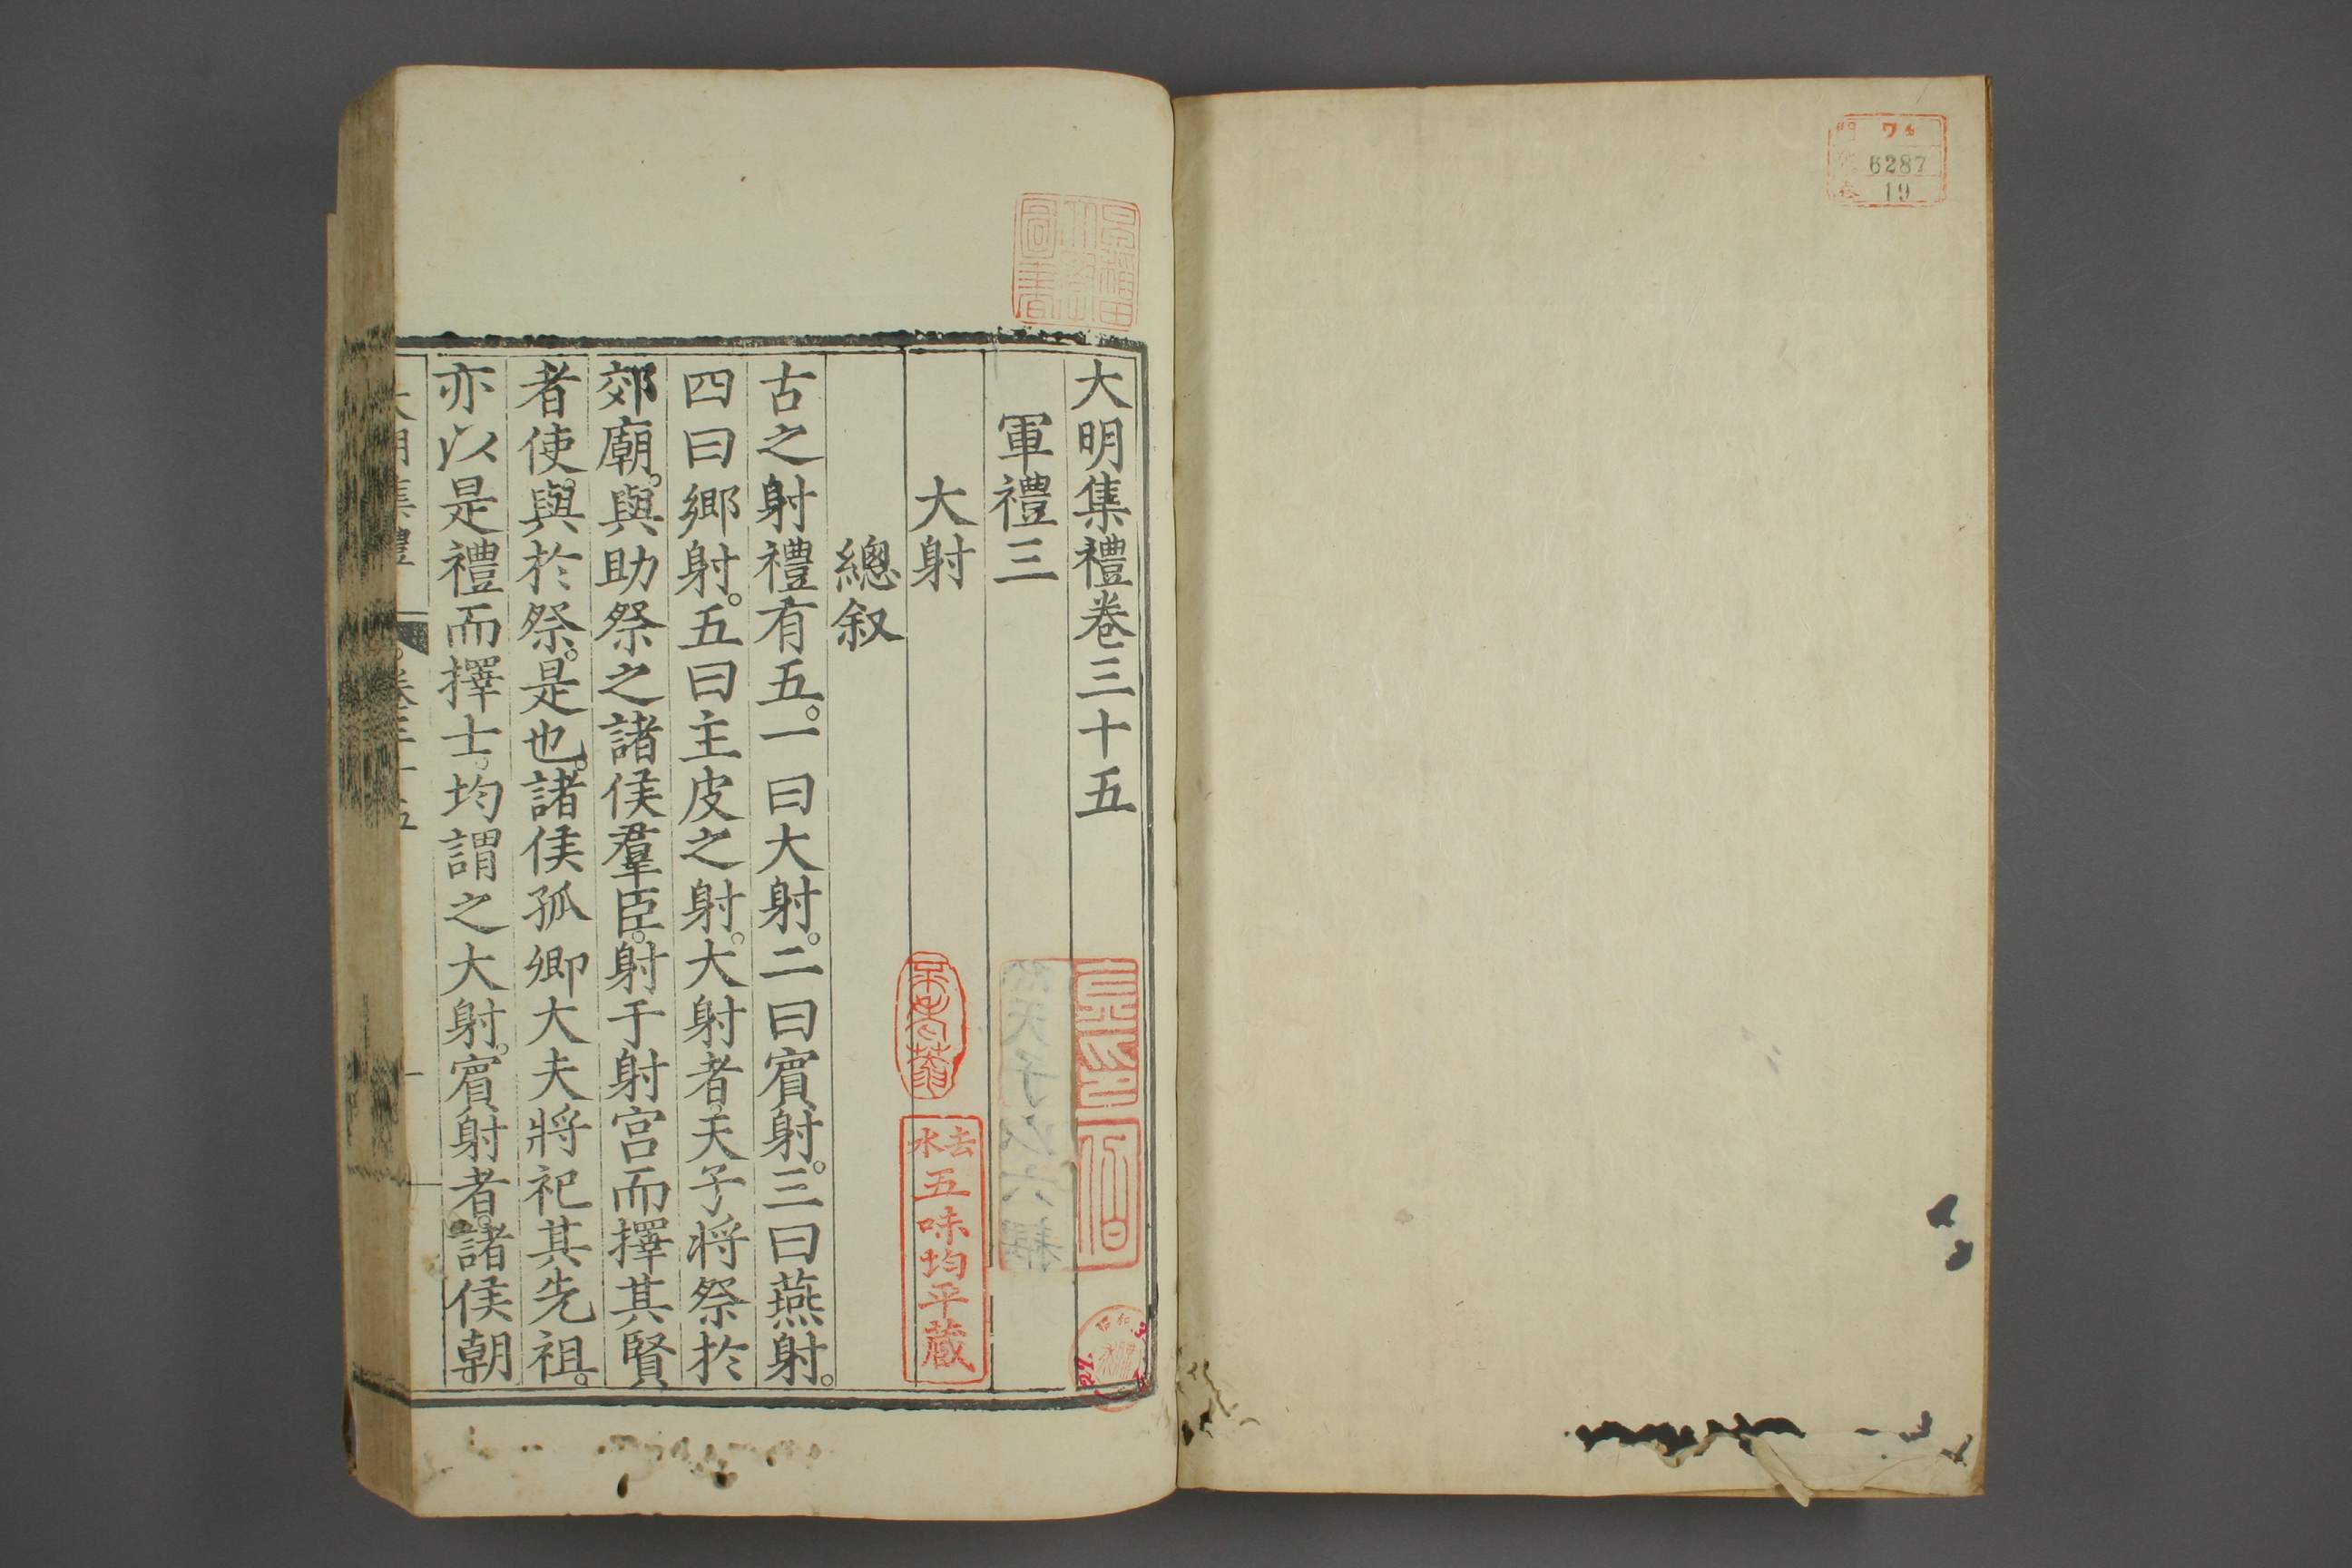 ワ4
6287
19
大明集禮卷三十五
軍禮三
大射
總叙
古之射禮有五。一曰大射。二曰賓射。三曰燕射。
四曰鄉射。五曰主皮之射。大射者。天子将祭於
郊廟。與助祭之諸侯羣臣。射于射宮而擇其賢
者使。與於祭。是也。諸侯孤卿大夫將祀其先祖。
亦以是禮而擇士。均謂之大射。賓射者。諸侯朝
大明集禮 卷三十五 一
圖書
去水
五味均平藏